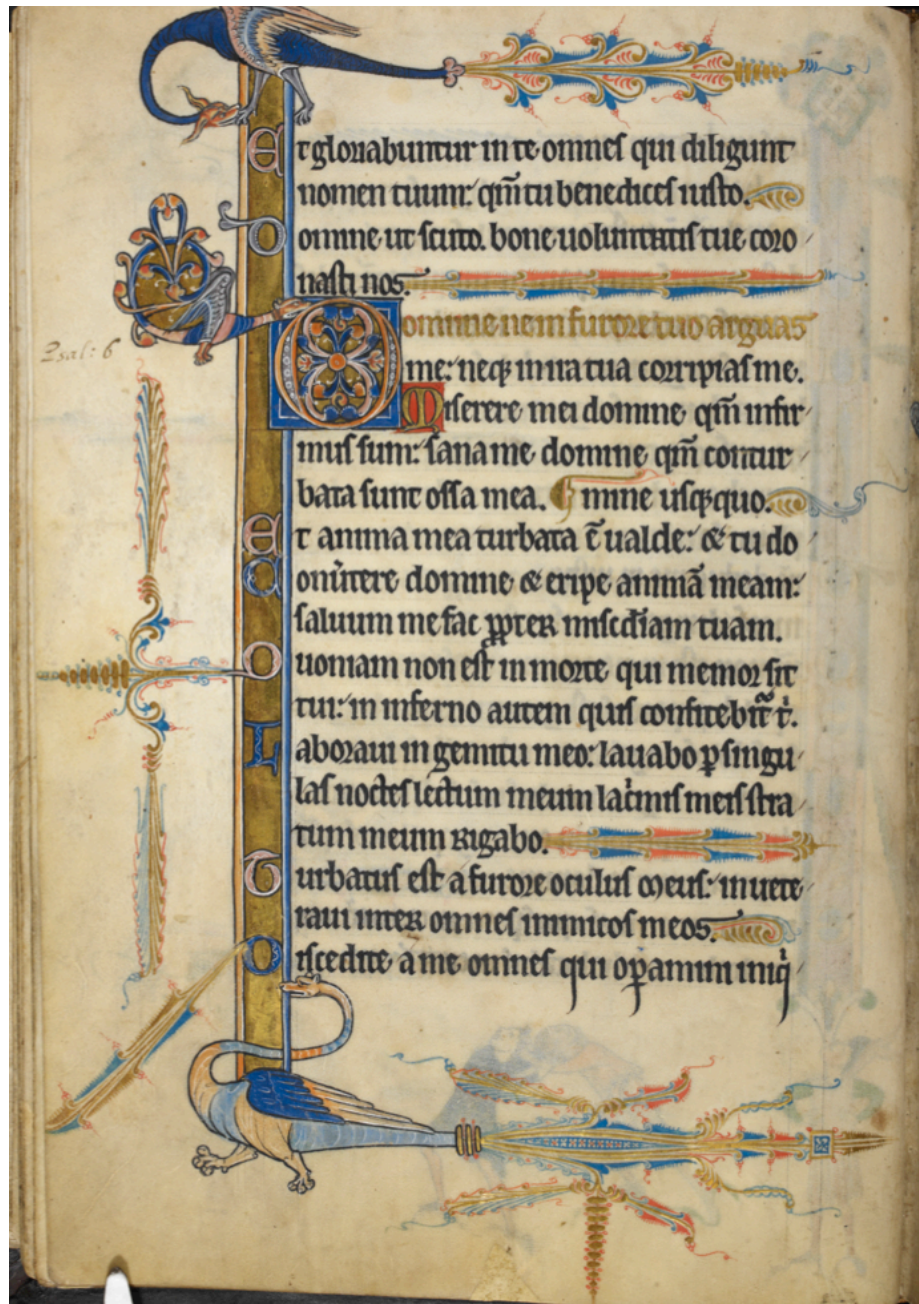 Et gloriabuntur in te omnes qui diligunt
nomen tuum: qm̄ tu benedices iusto.
Domine ut scuto. bone uoluntatis tue coro
nasti nos.
Psal: 6
Domine ne in furore tuo arguas
me: neqꝫ in ira tua corripias me.
Miserere mei domine qm̄ infir
mus sum: sana me domine qm̄ contur
bata sunt ossa mea. mine usqꝫquo.
Et anima mea turbata ē ualde: & tu do
Conũtere domine & eripe animā meam:
saluum me fac ꝓpter misc̄diam tuam.
Quoniam non est in morte qui memor sit
tui: in inferno autem quis confitebit᷑ t̃.
Laboraui in gemitu meo: lauabo ꝑ singu
las noctes lectum meum lac̃mis meis stra
tum meum rigabo.
Turbatus est a furore oculus meus: inuete
raui inter omnes inimicos meos.
Discedite a me omnes qui oꝑamini iniq̃